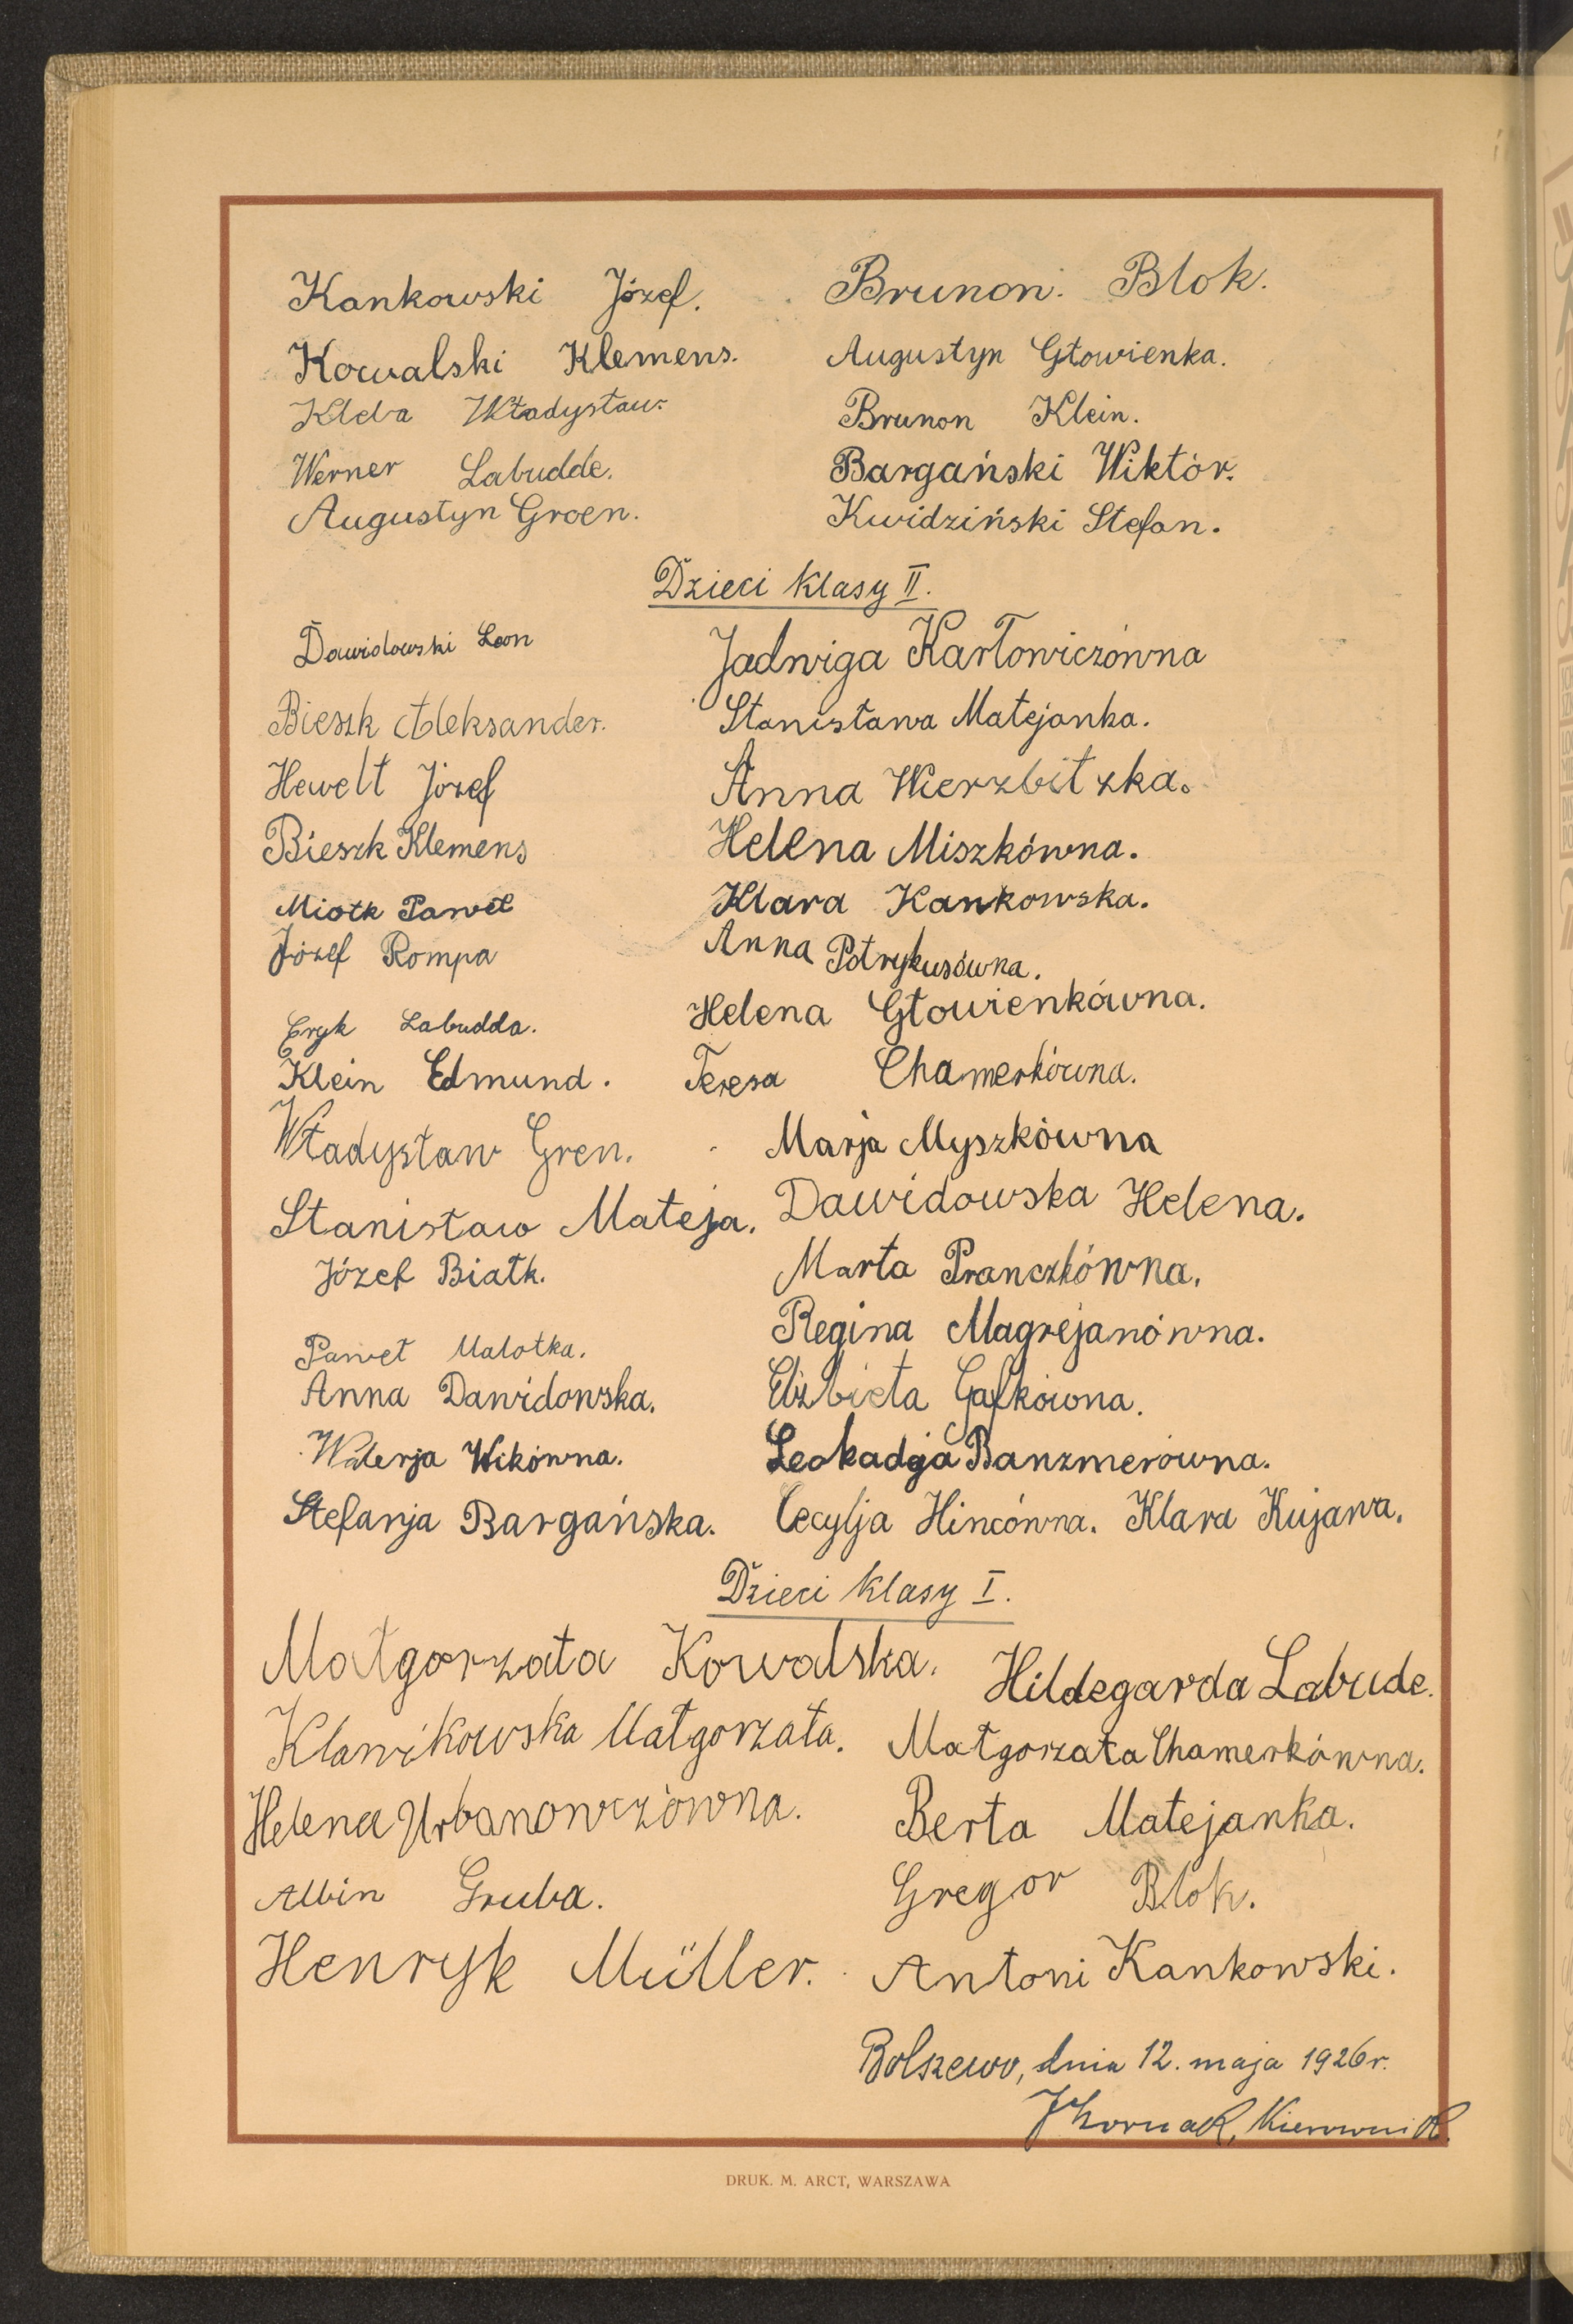 Kankowski Józef. Brunon. Blok.
Kowalski Klemens. Augustyn Głowienka.
Kleba Władysław. Brunon Klein.
Werner Labudde. Bargański Wiktór.
Augustyn Groen. Kwidziński Stefan.
Dzieci klasy II.
Dawidowski Leon Jadwiga Karłowiczówna
Bieszk Aleksander. Stanisława Matejanka.
Hewelt Józef Anna Wierzbitzka.
Bieszk Klemens Helena Miszkówna.
Miotk Paweł Klara Kankowska.
Józef Rompa Anna Potrykusówna.
Eryk Labudda. Helena Głowienkówna.
Klein Edmund. Teresa Chamerkówna.
Władysław Gren. Marja Myszkówna
Stanisław Mateja. Dawidowska Helena.
Józef Białk. Marta Pranczkówna.
Regina Magrejanówna.
Paweł Malotka.
Anna Dawidowska. Elżbieta Gafkówna.
Walerja Wikówna. Leokadja Banzmerówna.
Stefanja Bargańska. Cecylja Hincówna. Klara Kujawa.
Dzieci klasy I.
Małgorzata Kowalska. Hildegarda Labude.
Klawikowska Małgorzata. Małgorzata Chamerkówna.
Helena Urbanowczówna. Berta Matejanka.
Albin Gruba. Gregor Blok.
Henryk Müller. Antoni Kankowski.
Bolszewo, dnia 12. maja 1926 r.
Kierownik.
DRUK. M. ARCT, WARSZAWA